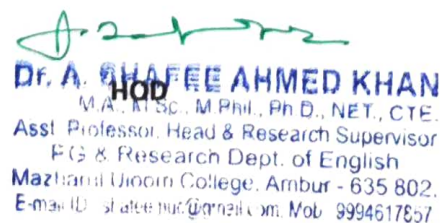 Dr. A. SHAFEE AHMED KHAN
HOD
M.A., M.Sc., M.Phil., Ph.D., NET., CTE.
Asst. Professor, Head & Research Supervisor
PG & Research Dept. of English
Mazharul Uloom College, Ambur - 635 802.
E-mail ID: Mob: 9994617857